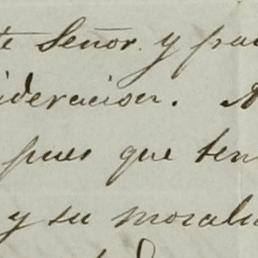 te Señor y par
ideracion. A
pues que ten
y su morali